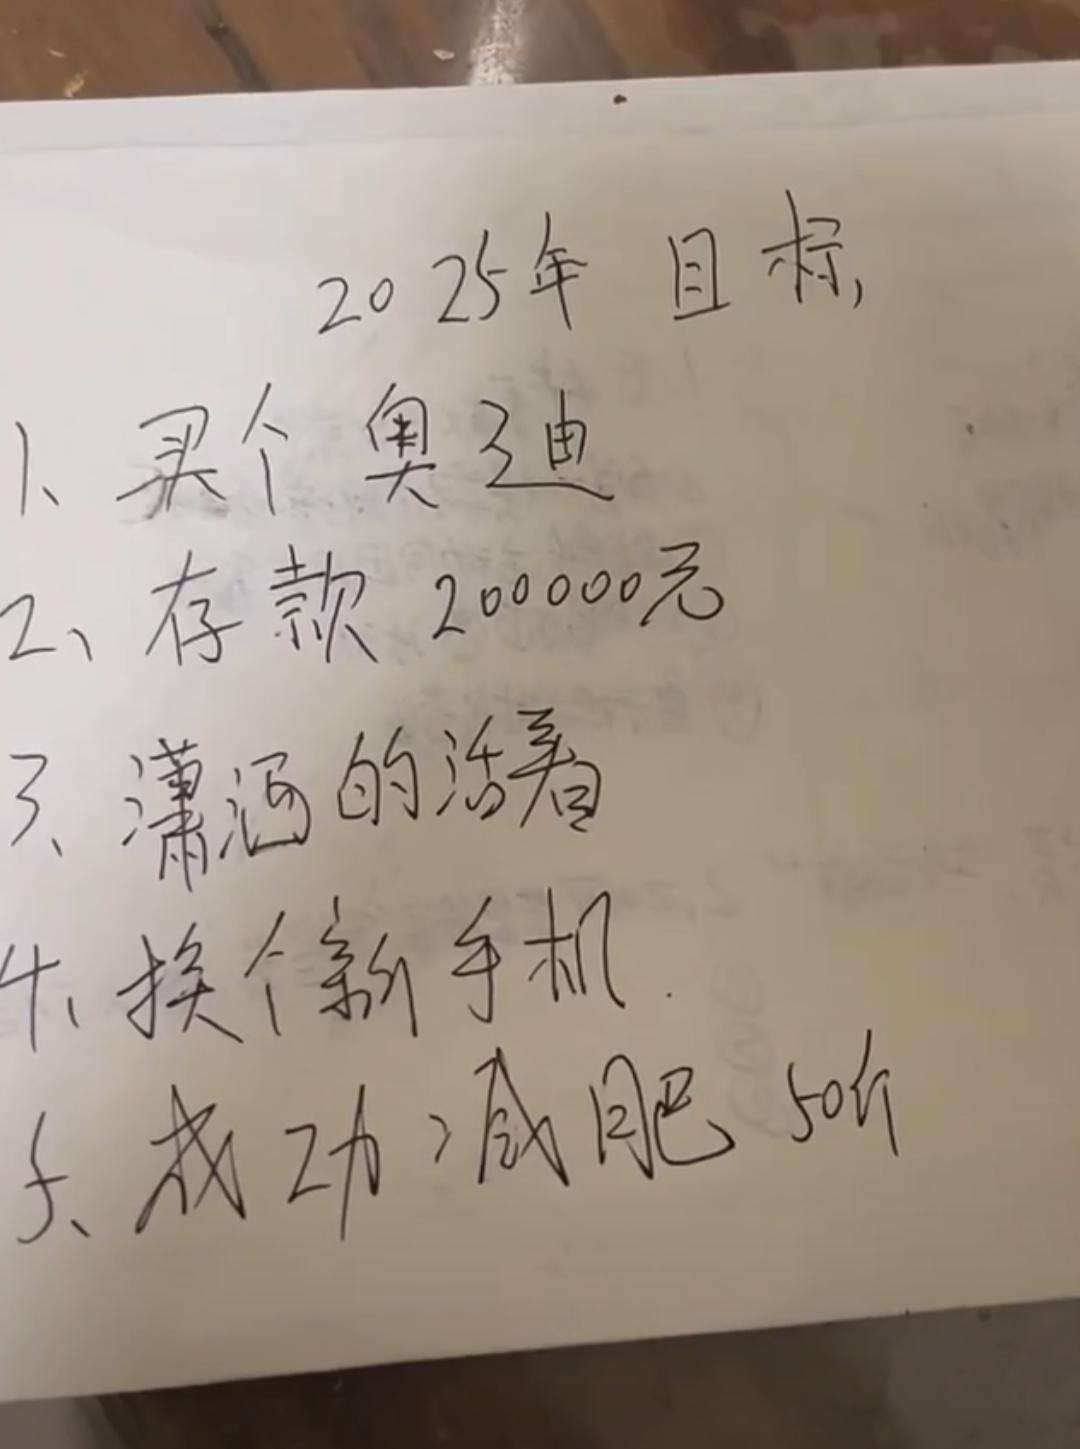 2025年目标,
1、买个奥迪
2、存款200000元
3、潇洒的活着
4、换个新手机.
5、成功减肥50斤